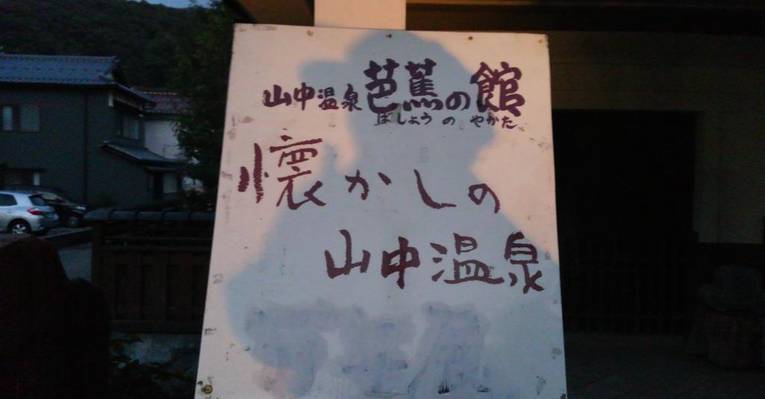 山中温泉芭蕉の館
ばしょう の やかた
懐かしの
山中温泉